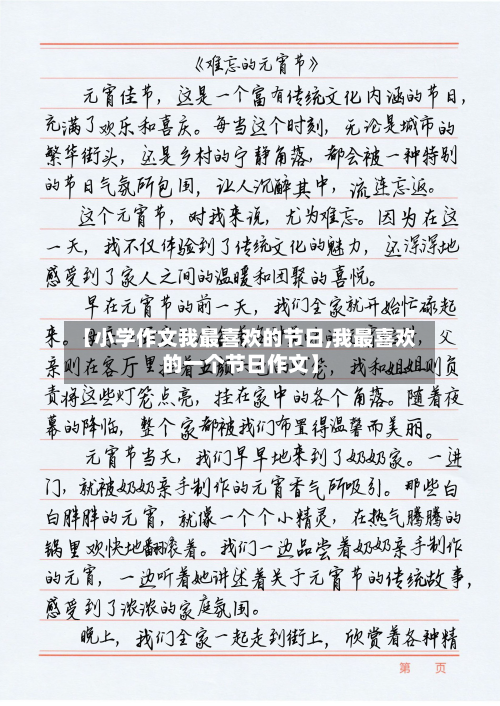 《难忘的元宵节》
元宵佳节，这是一个富有传统文化内涵的节日，
充满了欢乐和喜庆。每当这个时刻，无论是城市的
繁华街头，还是乡村的宁静角落，都会被一种特别
的节日气氛所包围，让人沉醉其中，流连忘返。
这个元宵节，对我来说，尤为难忘。因为在这
一天，我不仅体验到了传统文化的魅力，还深深地
感受到了家人之间的温暖和团聚的喜悦。
早在元宵节的前一天，我们全家就开始忙碌起
来。
父
【小学作文我最喜欢的节日,我最喜欢
的一个节日作文】
亲则在客厅里
我和姐姐则负
责将这些灯笼点亮，挂在家中的各个角落。随着夜
幕的降临，整个家都被我们布置得温馨而美丽。
元宵节当天，我们早早地来到了奶奶家。一进
门，就被奶奶亲手制作的元宵香气所吸引。那些白
白胖胖的元宵，就像一个个小精灵，在热气腾腾的
锅里欢快地翻滚着。我们一边品尝着奶奶亲手制作
的元宵，一边听着她讲述着关于元宵节的传统故事，
感受到了浓浓的家庭氛围。
晚上，我们全家一起走到街上，欣赏着各种精
第 页